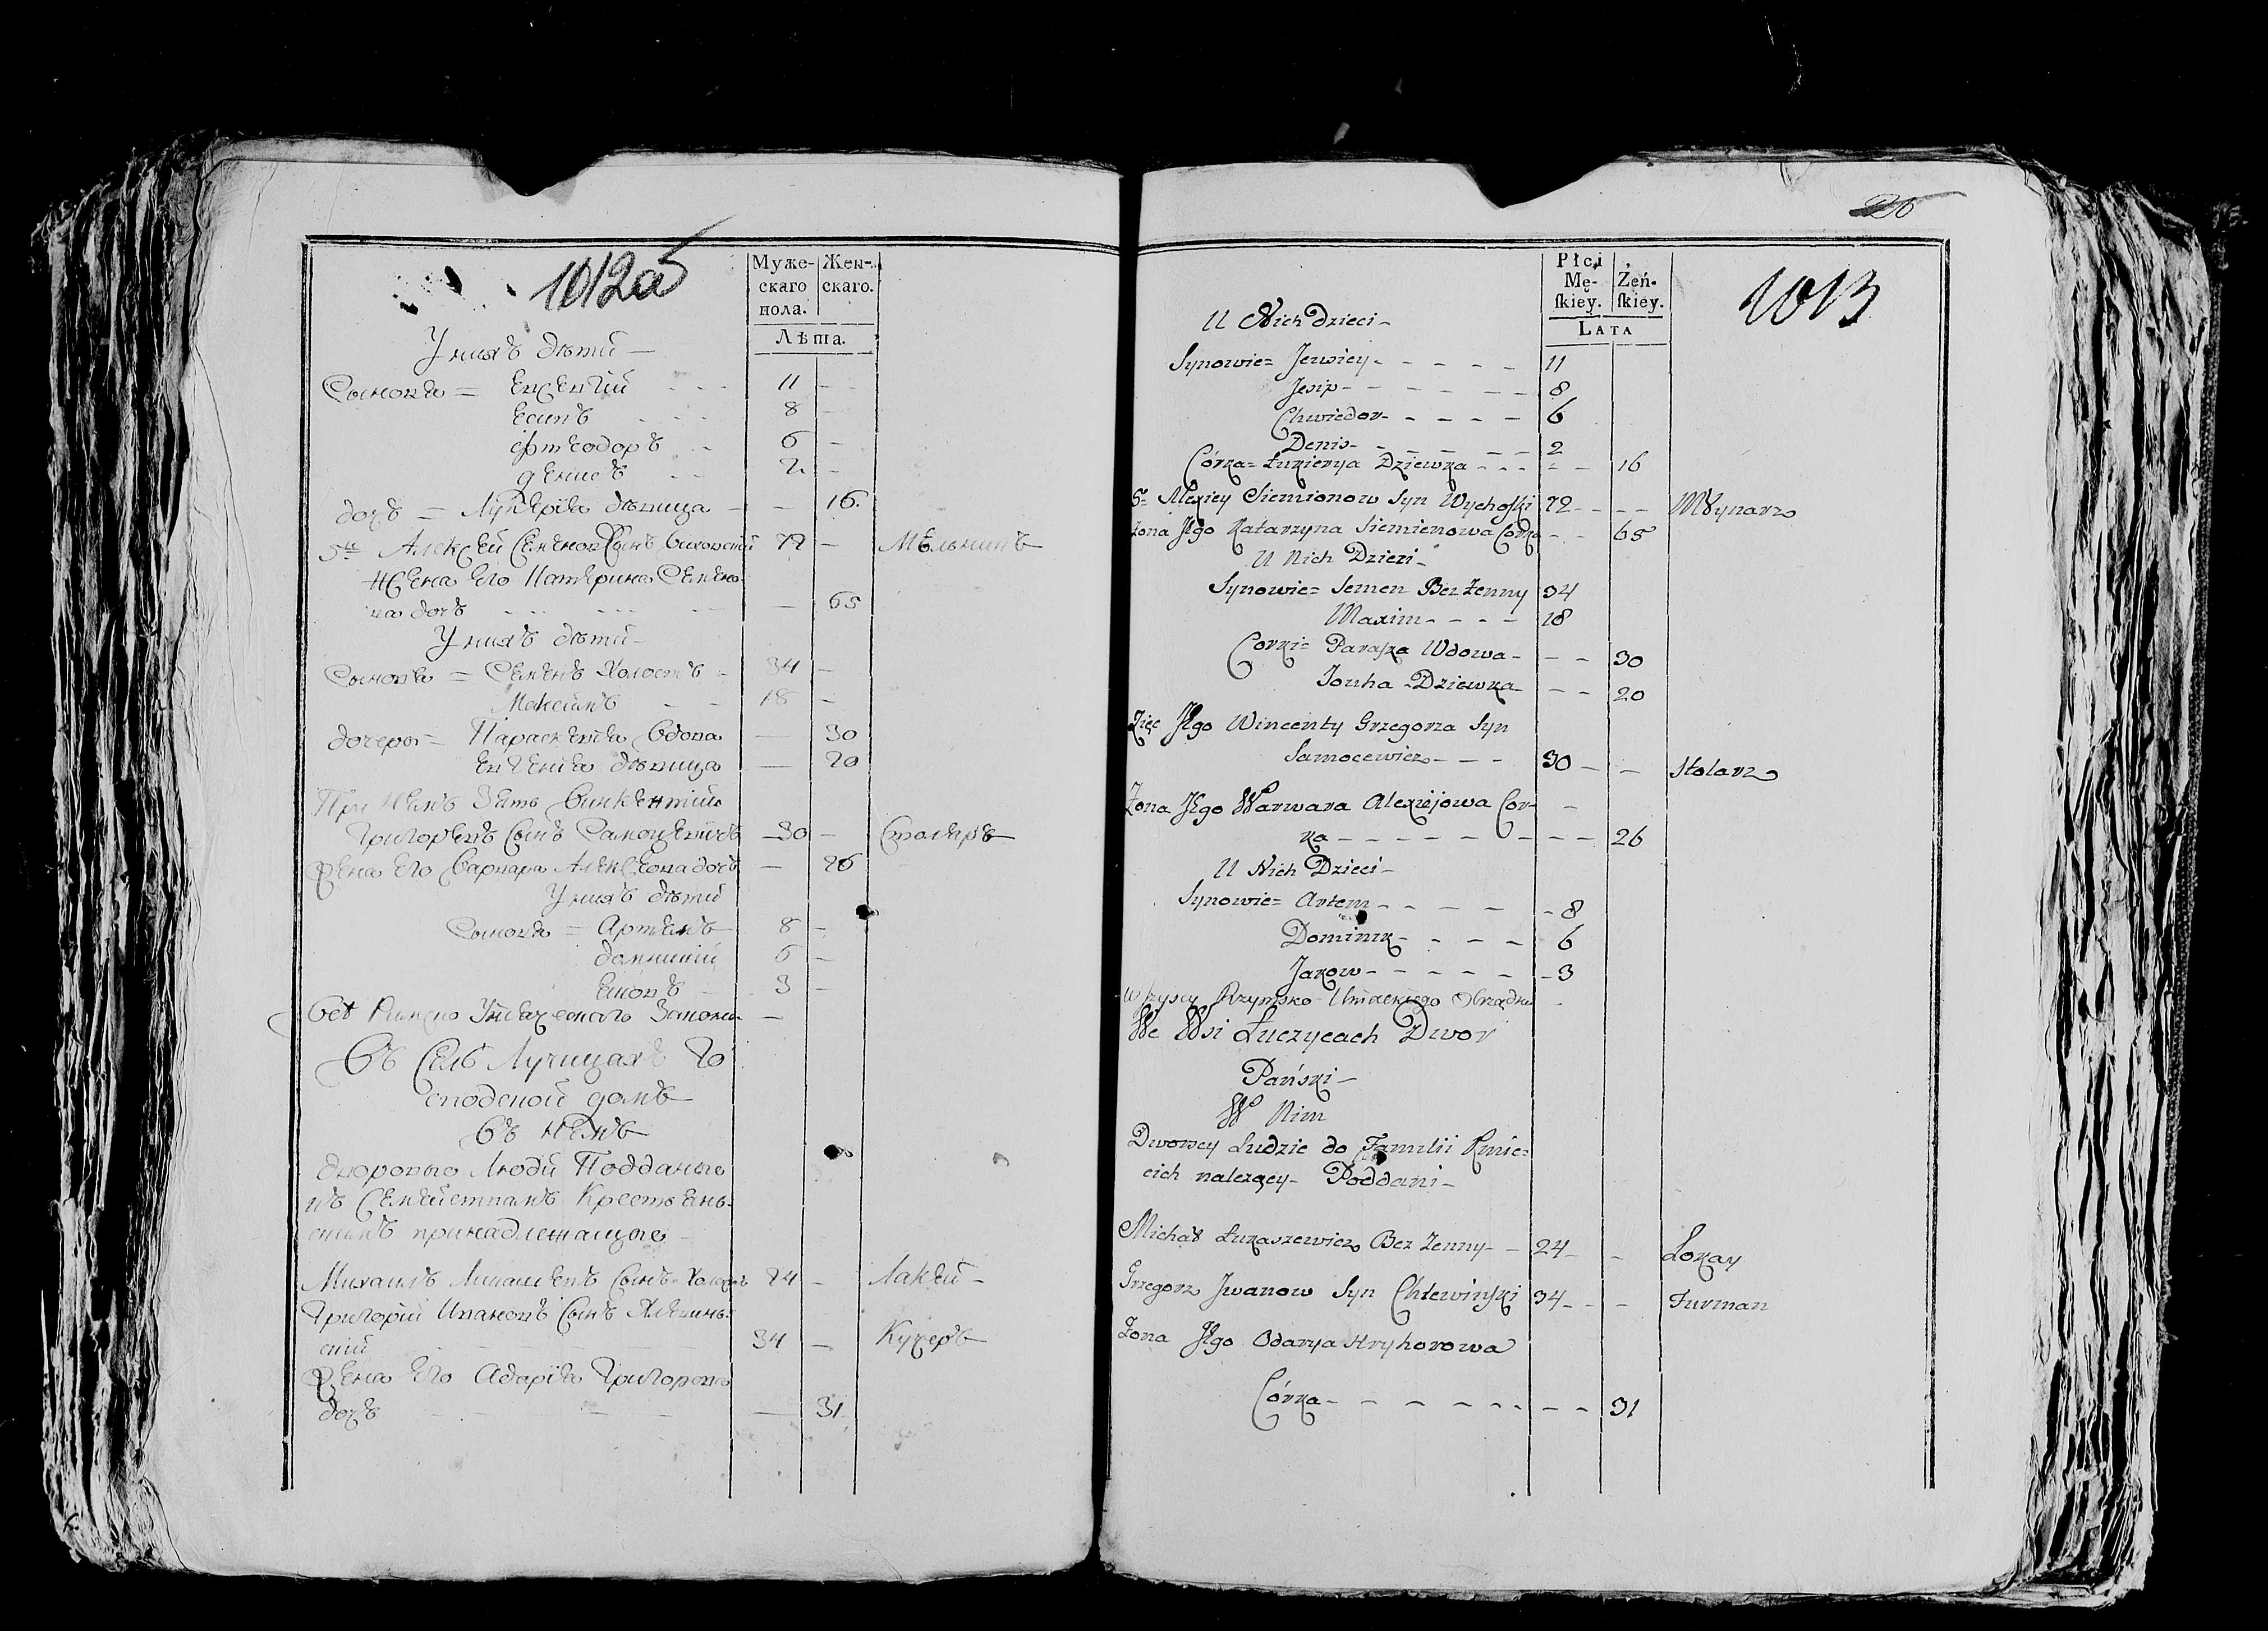 1012об
Муже-
скаго
пола.
Жен-
скаго.
Лѣта.
У нихъ дѣти —
Сыновья = Евсевгій 11
Есипъ 8
Фтеодоръ 6
Денисъ 2
дочь = Лукерія дѣвица 16.
5й Алексей Семеновъ Сынъ Виховский 72 Мѣльникъ
Жена Его Катерина Семено-
ва дочь 65
У нихъ дѣти —
Сыновья = Семенъ Холостъ 34
Максимъ 18
дочери = Параскевія вдова 30
Евгенія дѣвица 20
При немъ Зять Викентий
Григорьевъ Сынъ Самоцевичъ 30 Столяръ
Жена Его Варвара Алексеева дочь 26
У нихъ дѣти
Сыновья = Артемъ 8
Домникий 6
Яковъ 3
Всѣ Римско Униацкаго Закона
Въ Селѣ Лучицахъ Го
сподской домъ
Въ немъ
дворовые Люди Подданые
къ Семействамъ Крестьянь-
скимъ принадлежащые
Михаилъ Лукашевъ Сынъ Холостъ 24 Лакей —
Григорий Ивановъ Сынъ Хлевинь-
ский 34 Кучеръ
Жена Его Адарія Григорова
дочь 31
26
1013
Płci
Mę-
ſkiey.
Żeń-
ſkiey.
LATA
U Nich Dzieci —
Synowie = Jewsiey 11
Jesip 8
Chwiedor 6
Denis 2
Córka = Łukierya Dziewka 16
5= Alexiey Siemionow Syn Wychoſki 72 Młynarz
Żona Jego Katarzyna Siemienowa Corka 65
U Nich Dzieci —
Synowie = Semen Bez Żenny 34
Maxim 18
Corki = Paraſka Wdowa 30
Jouha Dziewka 20
Zięc Jego Wincenty Grzegorza Syn
Samocewicz 30 Stolarz
Żona Jego Warwara Alexiejowa Cor-
ka 26
U Nich Dzieci —
Synowie = Artem 8
Dominik 6
Jakow 3
Wſzyscy Rzymsko Uniackiego Obrządku
We Wsi Łuczycach Dwor
Pański —
W Nim
Dworscy Ludzie do Familii Kmie=
cich nalezący — Poddani —
Michał Łukaszewicz Bez Żenny 24 Lokay
Grzegorz Jwanow Syn Chlewinſki 34 Furman
Żona Jego Odarya Hryhorowa
Córka 31